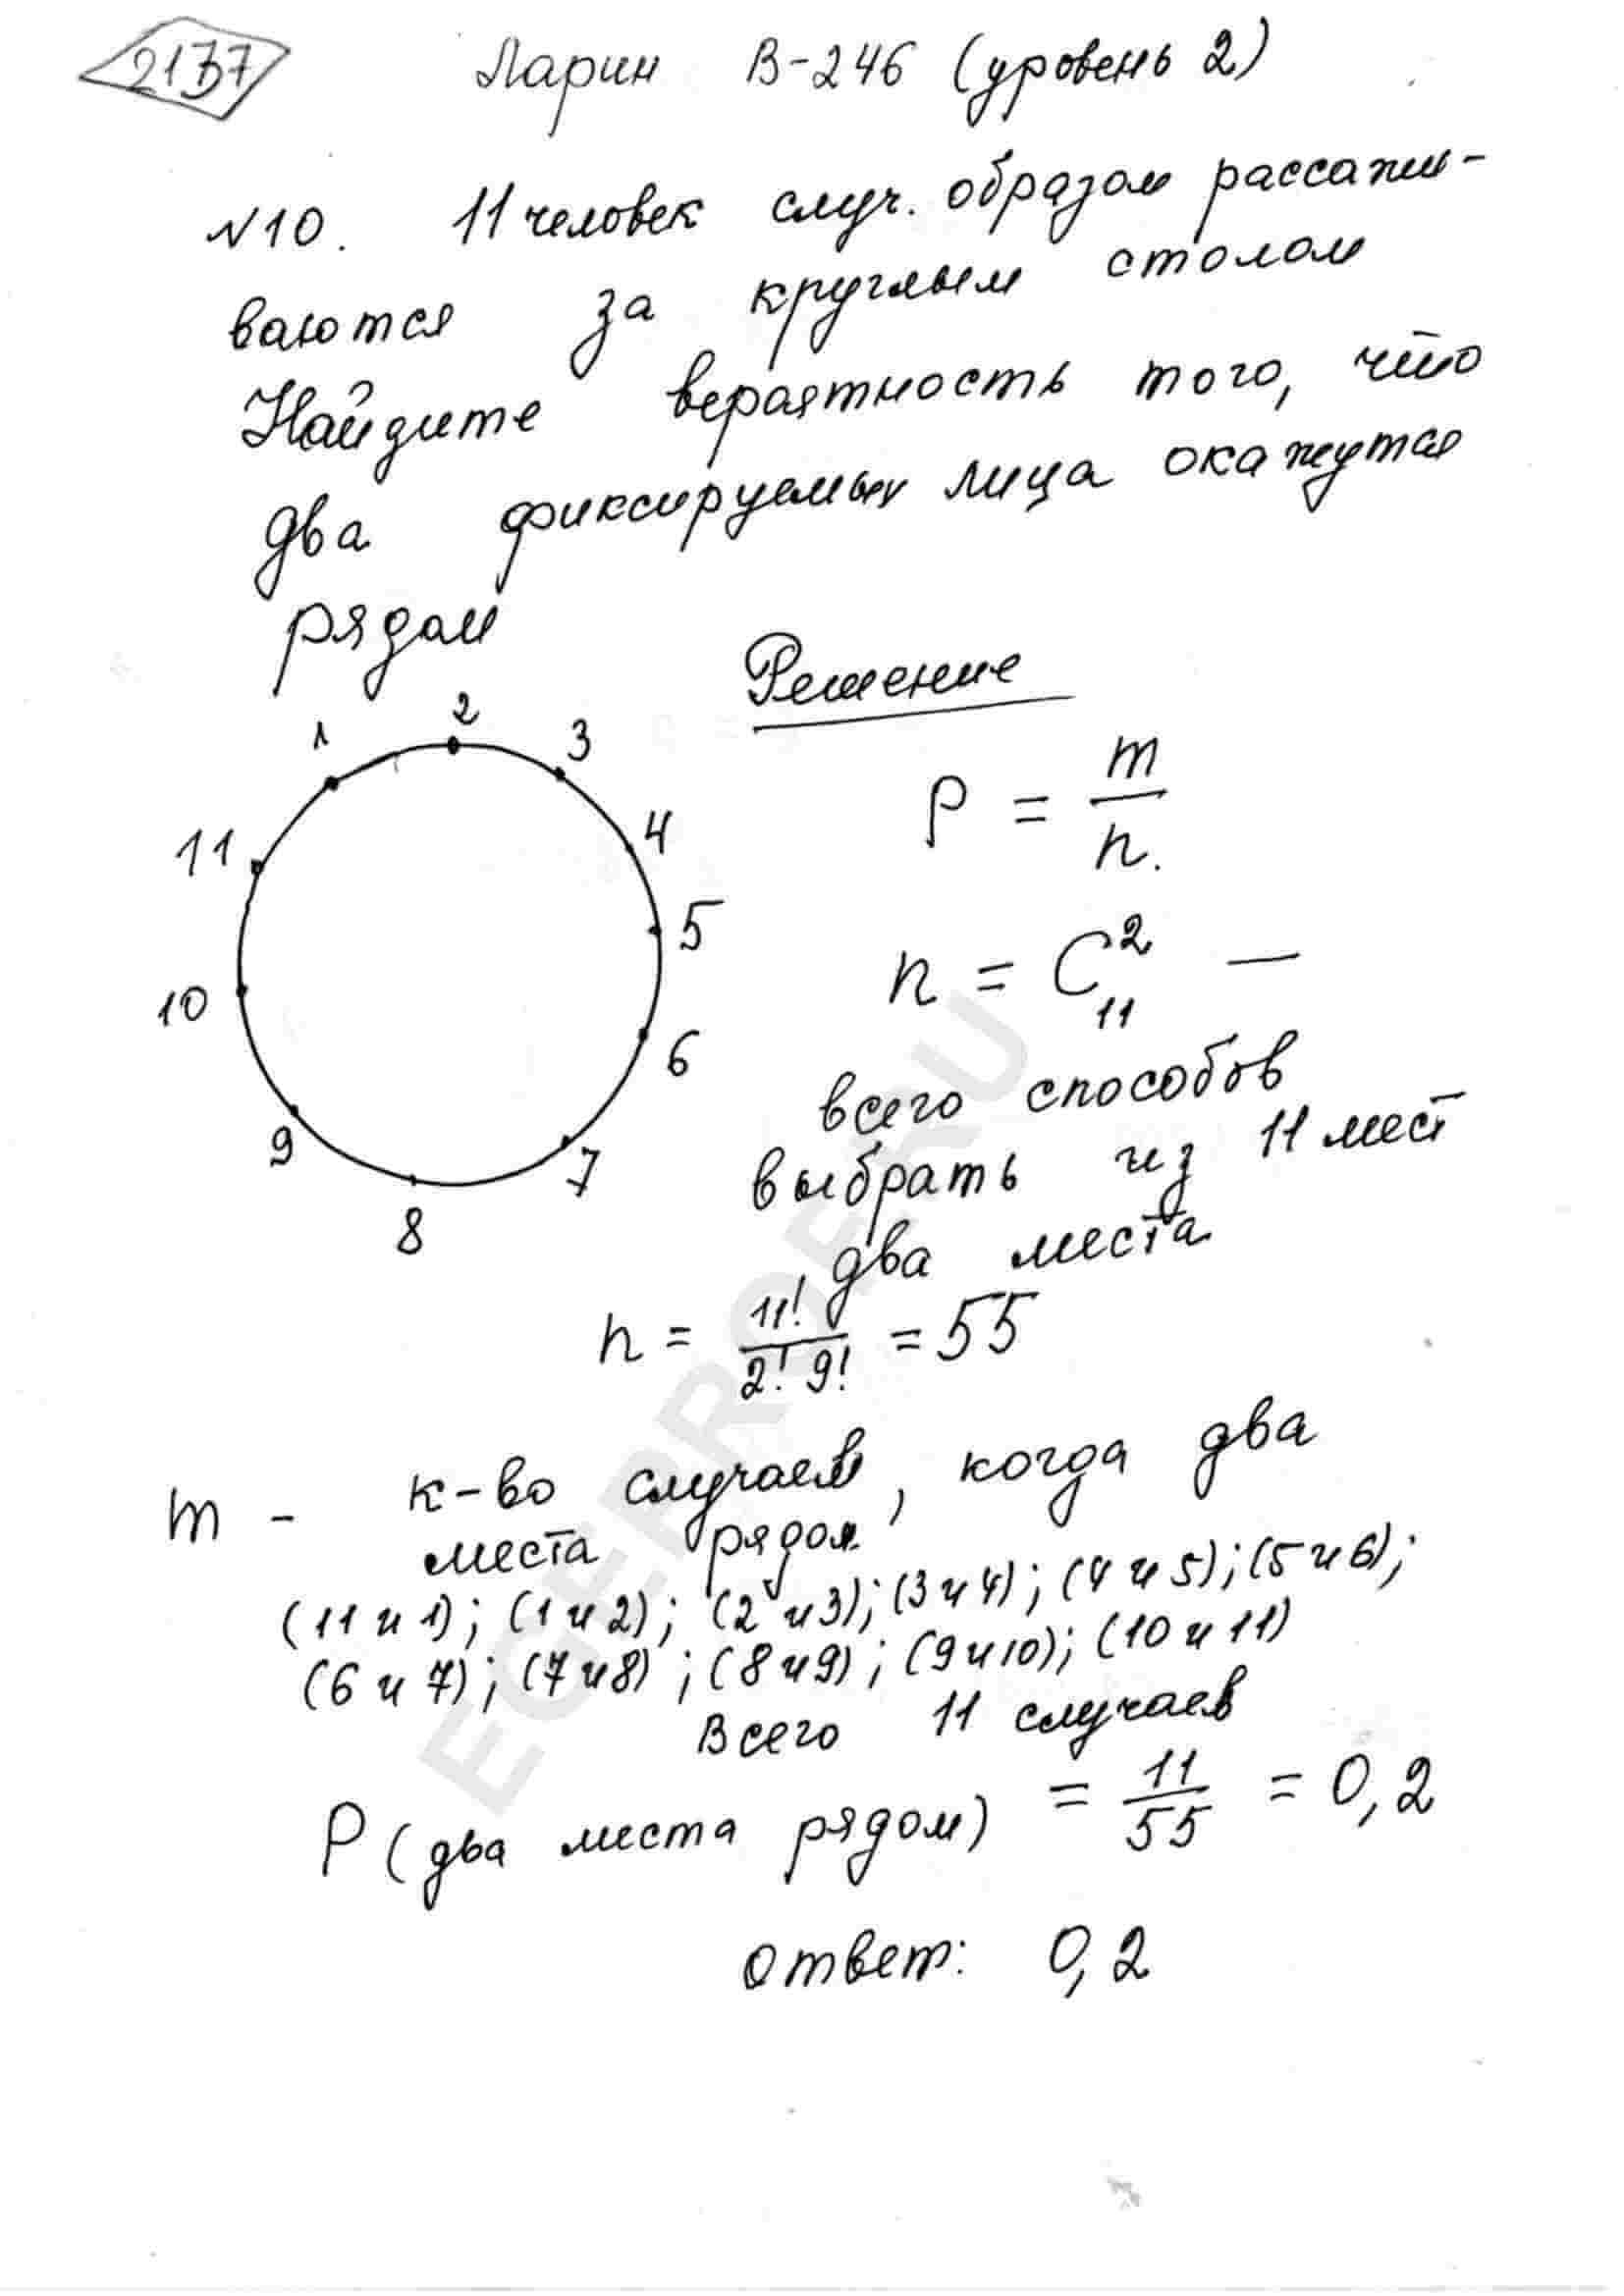 2137
Ларин В-246 (уровень 2)
№10. 11 человек случ. образом рассажи-
ваются за круглым столом
Найдите вероятность того, что
два фиксируемых лица окажутся
рядом
Решение
1
2
3
4
5
6
7
8
9
10
11
P = m/n.
n = C²₁₁ —
всего способов
выбрать из 11 мест
два места
n = 11!/2! 9! = 55
m - к-во случаев, когда два
места рядом
(11 и 1); (1 и 2); (2 и 3); (3 и 4); (4 и 5); (5 и 6);
(6 и 7); (7 и 8); (8 и 9); (9 и 10); (10 и 11)
Всего 11 случаев
P (два места рядом) = 11/55 = 0,2
ответ: 0,2
EGEPRO.RU